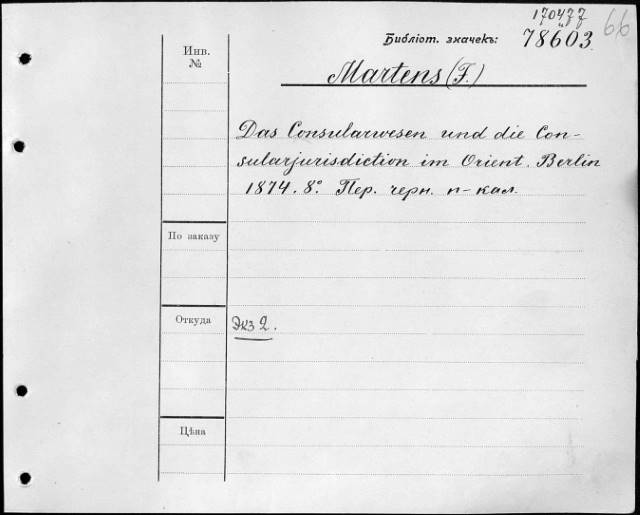 66
78603
Библіот. значекъ:
Инв.
№
Martens (F.)
Das Consularwesen und die Con-
sularjurisdiction im Orient. Berlin
1874. 8°. Пер. черн. п-кал.
По заказу
Откуда
Экз 2.
Цѣна